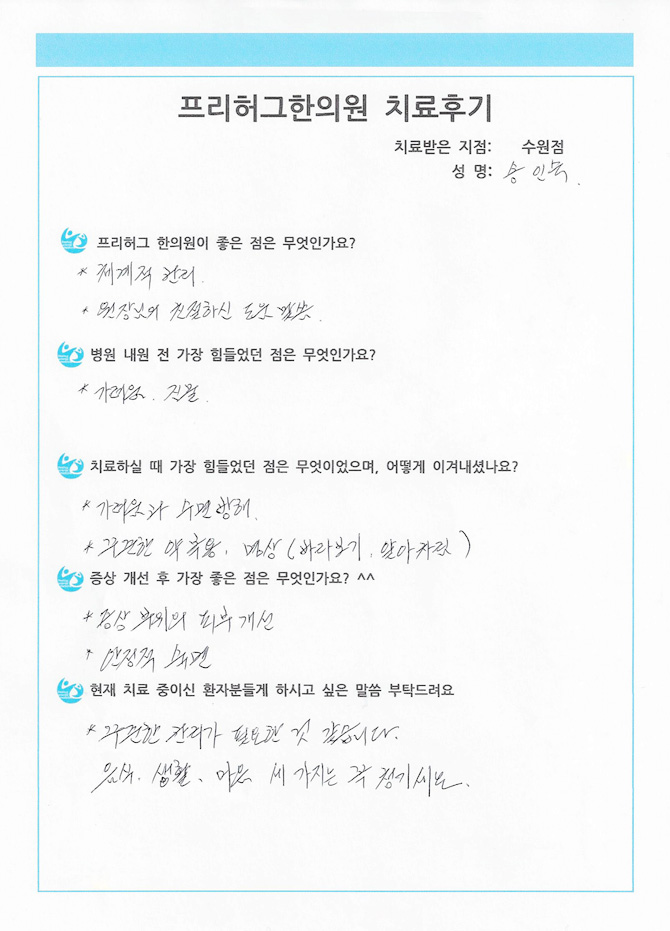 프리허그한의원 치료후기
치료받은 지점: 수원점
성 명: 송인욱.
프리허그 한의원이 좋은 점은 무엇인가요?
* 체계적 관리.
* 원장님의 친절하신 도움 말씀.
병원 내원 전 가장 힘들었던 점은 무엇인가요?
* 가려움. 진물.
치료하실 때 가장 힘들었던 점은 무엇이었으며, 어떻게 이겨내셨나요?
* 가려움과 수면방해.
* 꾸준한 약 복용, 명상(바라보기, 알아차림)
증상 개선 후 가장 좋은 점은 무엇인가요? ^^
* 증상 부위의 피부개선
* 안정적 수면
현재 치료 중이신 환자분들게 하시고 싶은 말씀 부탁드려요
* 꾸준한 관리가 필요한 것 같습니다.
음식. 생활, 마음 세 가지는 꼭 챙기세요.